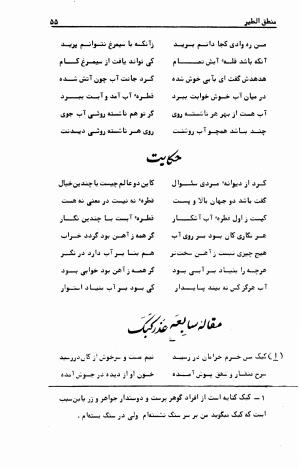 منطق الطیر ۵۵
من ره وادی کجا دانم برید زآنکه با سیمرغ نتوانم پرید
آنکه باشد قله‌ٔ آبش تمام کی تواند یافت از سیمرغ کام
هدهدش گفت ای بآبی خوش شده گرد جانت آب چون آتش شده
در میان آب خوش خوابت ببرد قطره‌ٔ آب آمد و آبت ببرد
آب هست از بهر هر ناشسته روی گر تو هم ناشسته روئی آب جوی
چند باشد همچو آب روشنت روی هر ناشسته روئی دیدنت
حکایت
کرد از دیوانه‌ٔ مردی سئوال کاین دو عالم چیست با چندین خیال
گفت باشد دو جهان بالا و پست قطره‌ٔ نه نیست در معنی نه هست
کیست ز اول قطره‌ٔ آب آشکار قطره‌ٔ آبست با چندین نگار
هر نگاری کان بود بر روی آب گر همه ز آهن بود گردد خراب
هیچ چیزی نیست ز آهن سخت‌تر هم بنا بر آب دارد در نگر
هرچه را بنیاد بر آبی بود گر همه ز آهن بود خوابی بود
آب هرگز کس نه بیند پایدار کی بود بر آب بنیاد استوار
مقاله سابعه عذر کبک
(۱) کبک بس خرم خرامان در رسید نیم مست و سرخوش از کان در رسید
سرخ منقار و سفق پوش آمده خون او از دیده در جوش آمده
۱ – کبک کنایه است از افراد گوهر پرست و دوستدار جواهر و زر باین‌سبب
است که کبک میگوید من بر سر سنگ نشسته‌ام ولی در سنگ بسته‌ام .